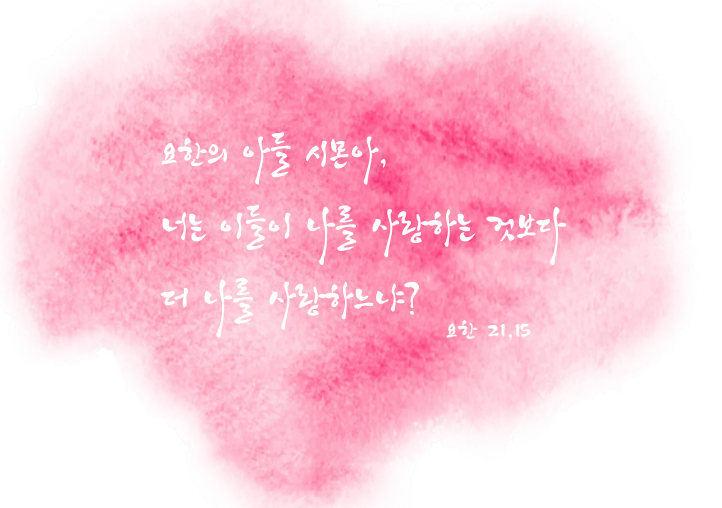 요한의 아들 시몬아,
너는 이들이 나를 사랑하는 것보다
더 나를 사랑하느냐?
요한 21,15